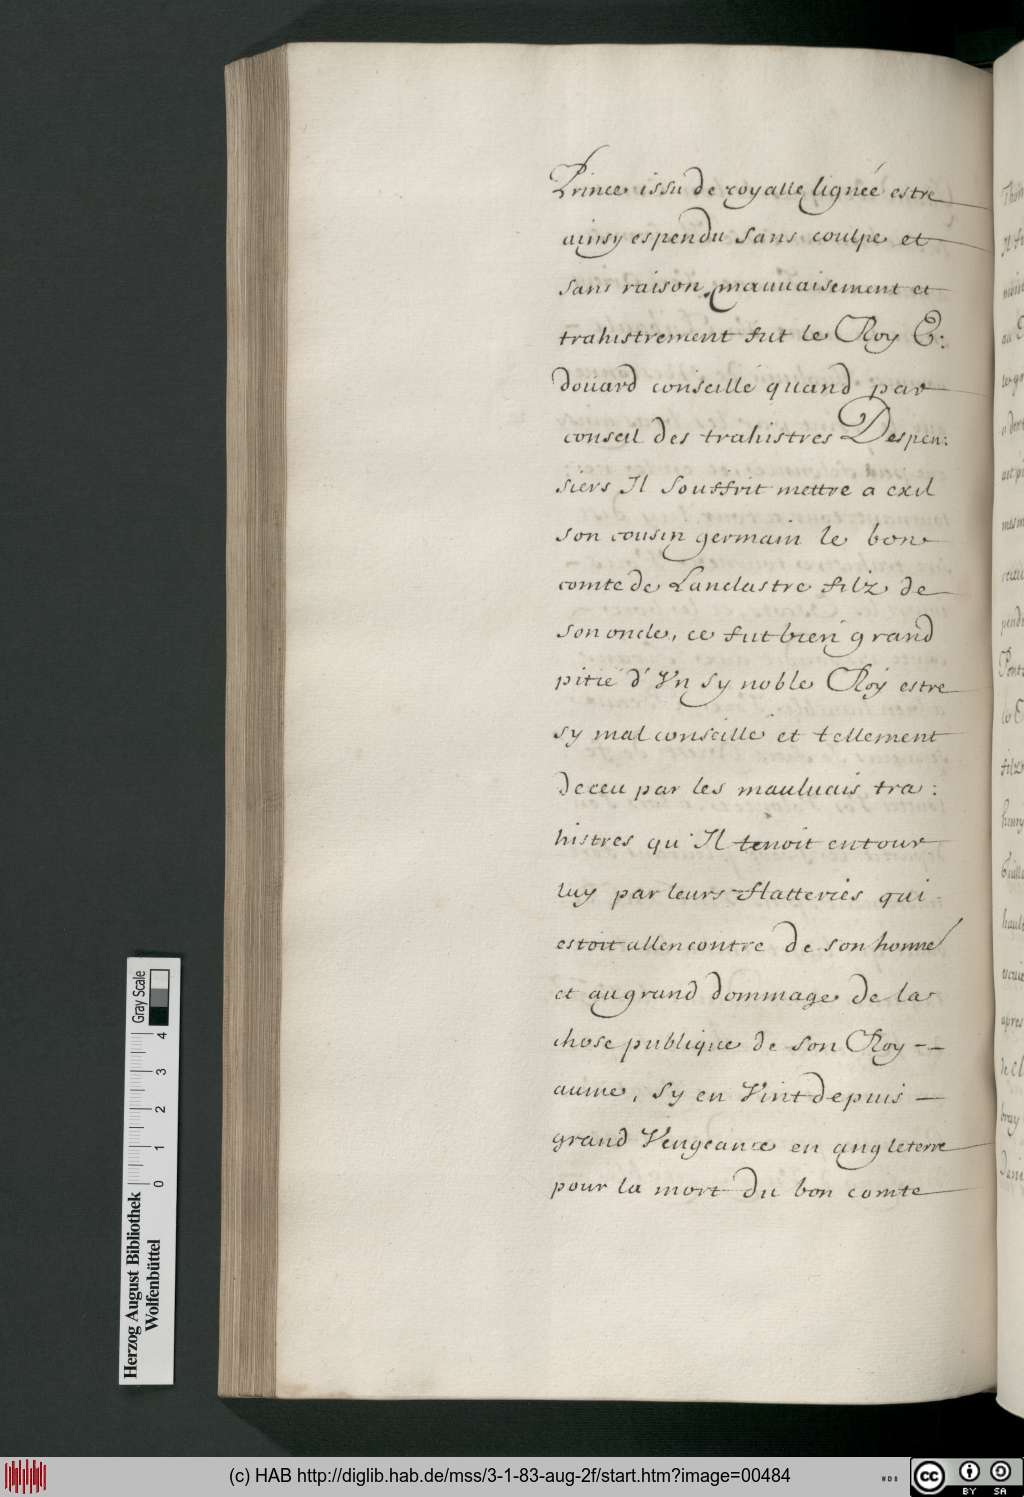 Prince issu de royalle lignée estre
ainsy espendu sans coulpe et
sans raison, mauuaisement et
trahistrement fut le Roy E:
douard conseillé quand par
conseil des trahistres Despen:
siers Il souffrit mettre a exil
son cousin germain le bon
comte de Lanclastre filz de
son oncle, ce fut bien grand
pitié d'Vn sy noble Roy estre
sy mal conseillé et tellement
deceu par les mauluais tra:
histres qu'Il tenoit entour
luy par leurs flatteries qui
estoit allencontre de son honné
et au grand dommage de la
chose publique de son Roy --
aume, sy en Vint depuis —
grand Vengeance en angleterre
pour la mort du bon comte
Gray Scale
0 1 2 3 4
Herzog August Bibliothek
Wolfenbüttel
(c) HAB http://diglib.hab.de/mss/3-1-83-aug-2f/start.htm?image=00484
WDB
cc BY SA